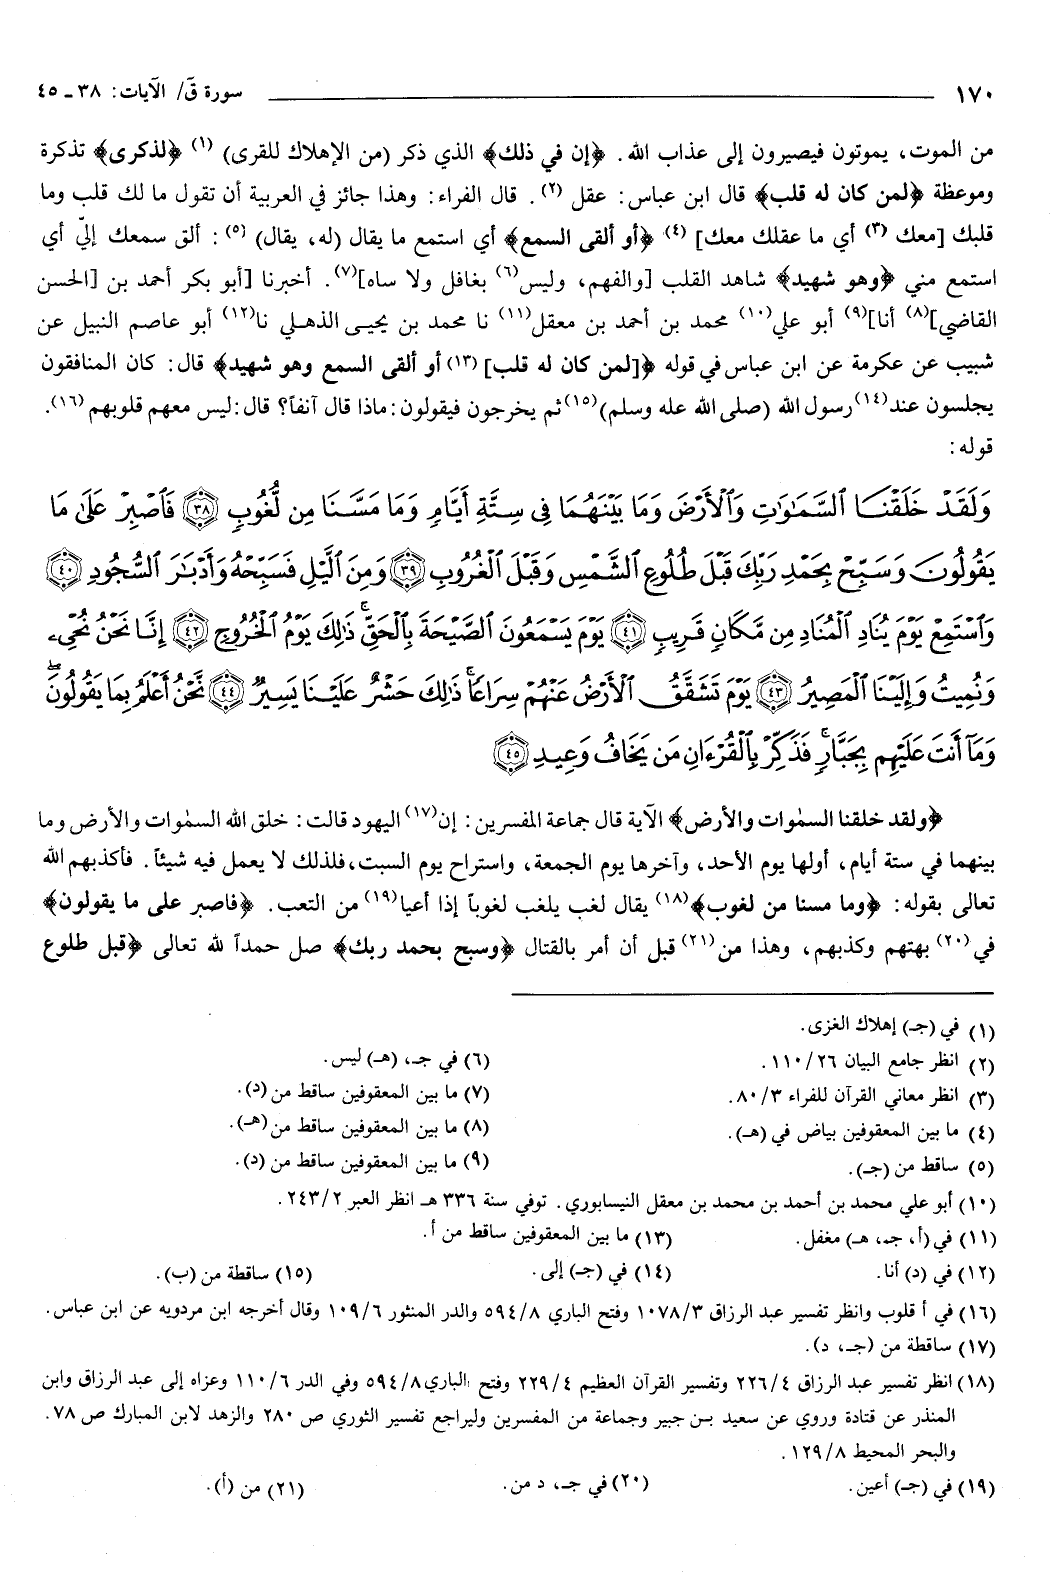 ١٧٠ سورة قۤ/ الآيات: ٣٨ ـ ٤٥
من الموت، يموتون فيصيرون إلى عذاب الله. ﴿إن في ذلك﴾ الذي ذكر (من الإهلاك للقرى) (١) ﴿لذكرى﴾ تذكرة
وموعظة ﴿لمن كان له قلب﴾ قال ابن عباس: عقل (٢). قال الفراء: وهذا جائز في العربية أن تقول ما لك قلب وما
قلبك [معك (٣) أي ما عقلك معك] (٤) ﴿أو ألقى السمع﴾ أي استمع ما يقال (له، يقال) (٥): ألق سمعك إليّ أي
استمع مني ﴿وهو شهيد﴾ شاهد القلب [والفهم، وليس(٦) بغافل ولا ساه](٧). أخبرنا [أبو بكر أحمد بن [الحسن
القاضي](٨) أنا](٩) أبو علي(١٠) محمد بن أحمد بن معقل(١١) نا محمد بن يحيى الذهلي نا(١٢) أبو عاصم النبيل عن
شبيب عن عكرمة عن ابن عباس في قوله ﴿[لمن كان له قلب] (١٣) أو ألقى السمع وهو شهيد﴾ قال: كان المنافقون
يجلسون عند(١٤) رسول الله (صلى الله عله وسلم)(١٥) ثم يخرجون فيقولون: ماذا قال آنفاً؟ قال: ليس معهم قلوبهم (١٦).
قوله:
وَلَقَدْ خَلَقْنَا السَّمَٰوَٰتِ وَالْأَرْضَ وَمَا بَيْنَهُمَا فِي سِتَّةِ أَيَّامٍ وَمَا مَسَّنَا مِن لُّغُوبٍ ٣٨ فَاصْبِرْ عَلَىٰ مَا
يَقُولُونَ وَسَبِّحْ بِحَمْدِ رَبِّكَ قَبْلَ طُلُوعِ الشَّمْسِ وَقَبْلَ الْغُرُوبِ ٣٩ وَمِنَ الَّيْلِ فَسَبِّحْهُ وَأَدْبَٰرَ السُّجُودِ ٤٠
وَاسْتَمِعْ يَوْمَ يُنَادِ الْمُنَادِ مِن مَّكَانٍ قَرِيبٍ ٤١ يَوْمَ يَسْمَعُونَ الصَّيْحَةَ بِالْحَقِّ ۚ ذَٰلِكَ يَوْمُ الْخُرُوجِ ٤٢ إِنَّا نَحْنُ نُحْيِۦ
وَنُمِيتُ وَإِلَيْنَا الْمَصِيرُ ٤٣ يَوْمَ تَشَقَّقُ الْأَرْضُ عَنْهُمْ سِرَاعًا ۚ ذَٰلِكَ حَشْرٌ عَلَيْنَا يَسِيرٌ ٤٤ نَّحْنُ أَعْلَمُ بِمَا يَقُولُونَ ۖ
وَمَا أَنتَ عَلَيْهِم بِجَبَّارٍ ۚ فَذَكِّرْ بِالْقُرْءَانِ مَن يَخَافُ وَعِيدِ ٤٥
﴿ولقد خلقنا السمٰوات والأرض﴾ الآية قال جماعة المفسرين: إن(١٧) اليهود قالت: خلق الله السمٰوات والأرض وما
بينهما في ستة أيام، أولها يوم الأحد، وآخرها يوم الجمعة، واستراح يوم السبت، فلذلك لا يعمل فيه شيئاً. فأكذبهم الله
تعالى بقوله: ﴿وما مسنا من لغوب﴾(١٨) يقال لغب يلغب لغوباً إذا أعيا(١٩) من التعب. ﴿فاصبر على ما يقولون﴾
في(٢٠) بهتهم وكذبهم، وهذا من(٢١) قبل أن أمر بالقتال ﴿وسبح بحمد ربك﴾ صل حمداً لله تعالى ﴿قبل طلوع
(١) في (جـ) إهلاك الغزى.
(٢) انظر جامع البيان ٢٦/ ١١٠. (٦) في جـ، (هـ) ليس.
(٣) انظر معاني القرآن للفراء ٣/ ٨٠. (٧) ما بين المعقوفين ساقط من (د).
(٤) ما بين المعقوفين بياض في (هـ). (٨) ما بين المعقوفين ساقط من (هـ).
(٥) ساقط من (جـ). (٩) ما بين المعقوفين ساقط من (د).
(١٠) أبو علي محمد بن أحمد بن محمد بن معقل النيسابوري. توفي سنة ٣٣٦ هـ انظر العبر ٢/ ٢٤٣.
(١١) في (أ، جـ، هـ) مغفل. (١٣) ما بين المعقوفين ساقط من أ.
(١٢) في (د) أنا. (١٤) في (جـ) إلى. (١٥) ساقطة من (ب).
(١٦) في أ قلوب وانظر تفسير عبد الرزاق ٣/ ١٠٧٨ وفتح الباري ٨/ ٥٩٤ والدر المنثور ٦/ ١٠٩ وقال أخرجه ابن مردويه عن ابن عباس.
(١٧) ساقطة من (جـ، د).
(١٨) انظر تفسير عبد الرزاق ٤/ ٢٢٦ وتفسير القرآن العظيم ٤/ ٢٢٩ وفتح الباري ٨/ ٥٩٤ وفي الدر ٦/ ١١٠ وعزاه إلى عبد الرزاق وابن
المنذر عن قتادة وروي عن سعيد بن جبير وجماعة من المفسرين وليراجع تفسير الثوري ص ٢٨٠ والزهد لابن المبارك ص ٧٨.
والبحر المحيط ٨/ ١٢٩.
(١٩) في (جـ) أعين. (٢٠) في جـ، د من. (٢١) من (أ).